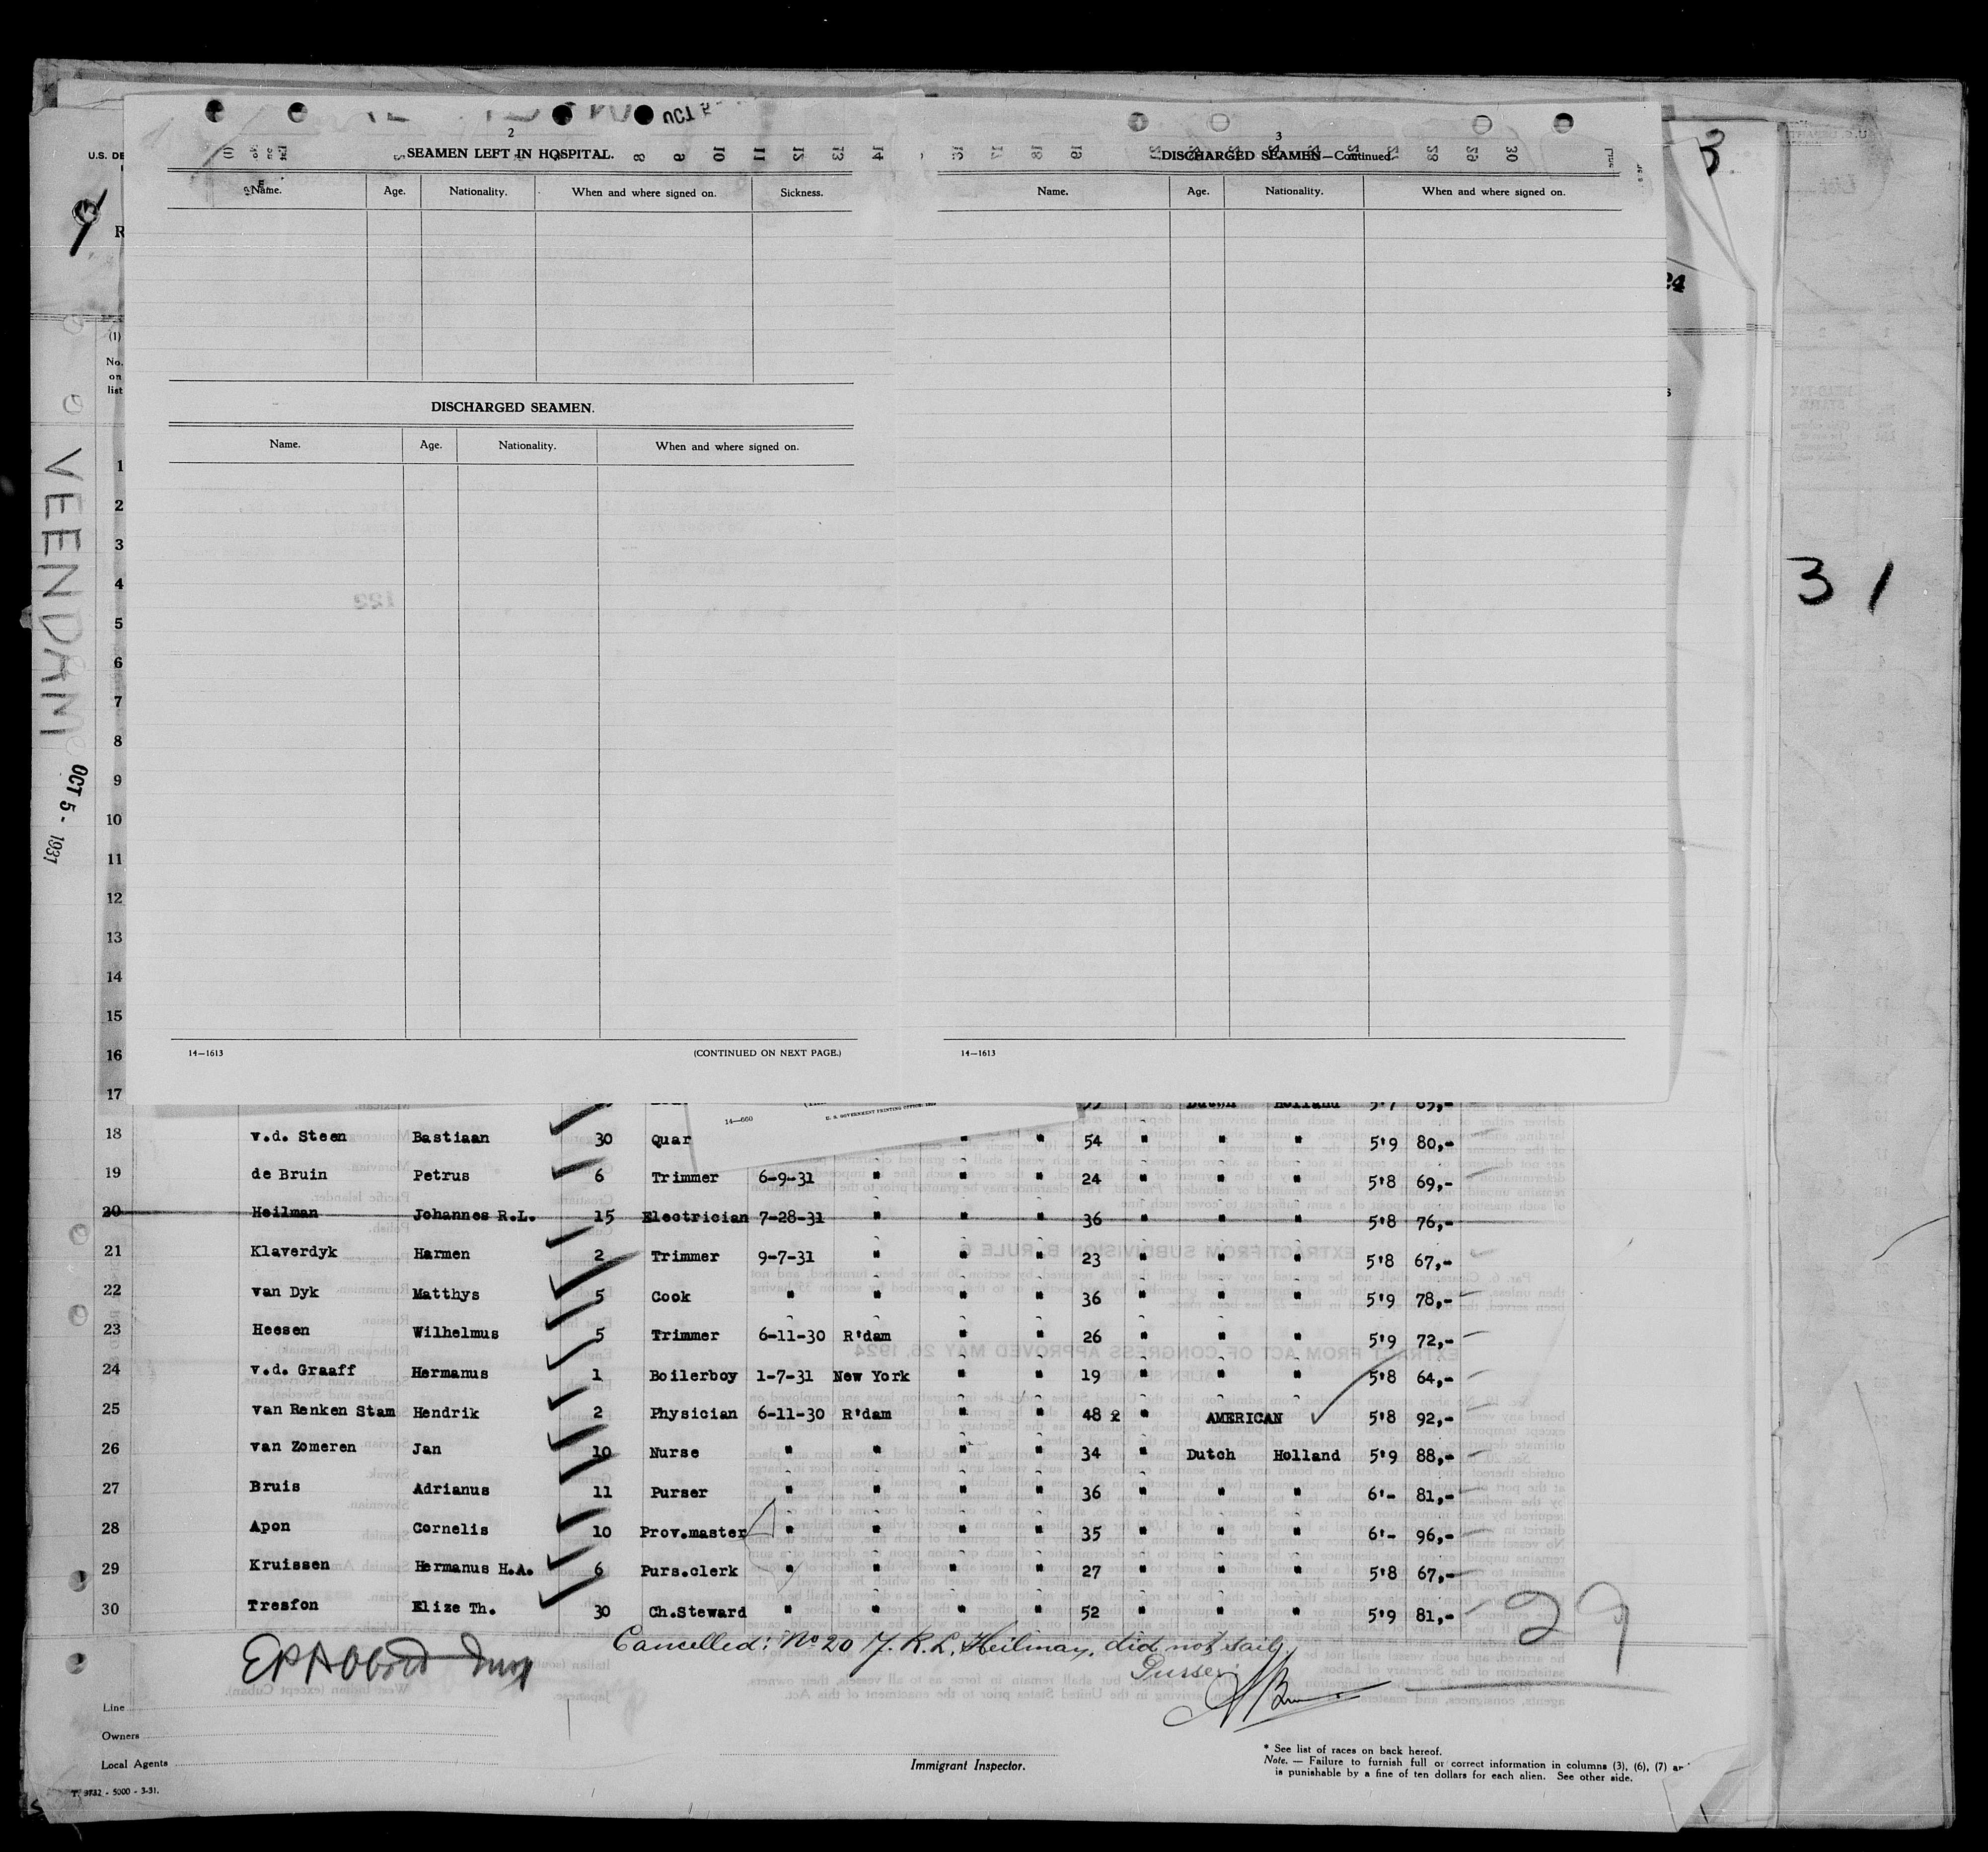 2
SEAMEN LEFT IN HOSPITAL.
Name. Age. Nationality. When and where signed on. Sickness.
DISCHARGED SEAMEN.
Name. Age. Nationality. When and where signed on.
14—1613 (CONTINUED ON NEXT PAGE.)
3
DISCHARGED SEAMEN—Continued.
Name. Age. Nationality. When and where signed on.
14—1613
3
24
3 1
U.S. DE
R
(1)
No.
on
list
VEENDAM
OCT 5 - 1931
1
2
3
4
5
6
7
8
9
10
11
12
13
14
15
16
17 Dutch Holland 5'7 85,-
14—660
18 v.d. Steen Bastiaan 30 Quar " " 54 " " " 5'9 80,-
19 de Bruin Petrus 6 Trimmer 6-9-31 " " " 24 " " " 5'8 69,-
20 Heilman Johannes R.L. 15 Electrician 7-28-31 " " " 36 " " " 5'8 76,-
21 Klaverdyk Harmen 2 Trimmer 9-7-31 " " " 23 " " " 5'8 67,-
22 van Dyk Matthys 5 Cook " " " " 36 " " " 5'9 78,-
23 Heesen Wilhelmus 5 Trimmer 6-11-30 R'dam " " 26 " " " 5'9 72,-
24 v.d. Graaff Hermanus 1 Boilerboy 1-7-31 New York " " 19 " " " 5'8 64,-
25 van Renken Stam Hendrik 2 Physician 6-11-30 R'dam " " 48 " AMERICAN 5'8 92,-
26 van Zomeren Jan 10 Nurse " " " " 34 " Dutch Holland 5'9 88,-
27 Bruis Adrianus 11 Purser " " " " 36 " " " 6'- 81,-
28 Apon Cornelis 10 Prov.master " " " " 35 " " " 6'- 96,-
29 Kruissen Hermanus H.A. 6 Purs.clerk " " " " 27 " " " 5'8 67,-
30 Tresfon Elize Th. 30 Ch.Steward " " " " 52 " " " 5'9 81,-
29
Cancelled: No 20 J. R. L. Heilman, did not sail
Purser
Line
Owners
Local Agents
Immigrant Inspector.
* See list of races on back hereof.
Note. — Failure to furnish full or correct information in columns (3), (6), (7) an
is punishable by a fine of ten dollars for each alien. See other side.
T. 3732 - 5000 - 3-31.